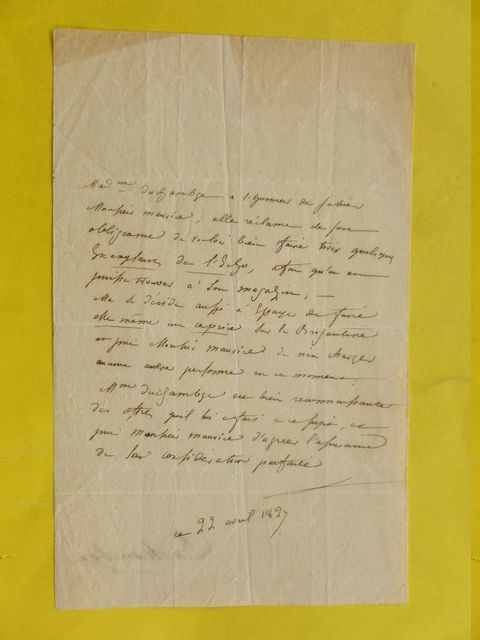 Mad.me duchambge a l'honneur de saluer
Monsieur maurice; elle réclame de son
obligeance de vouloir bien faire tirer quelques
Exemplaires de l'Echo, afin qu'on en
puisse trouver à son magazin; —
elle se décide aussi à essayer de faire
elle même un caprice sur la Brigantine
et prie Monsieur maurice de n'en charger
aucune autre personne en ce moment.
Mme duchambge est bien reconnaissante
des offres qu'il lui a fait, et
prie monsieur maurice d'agréer l'assurance
de sa considération parfaite
ce 22 avril 1827